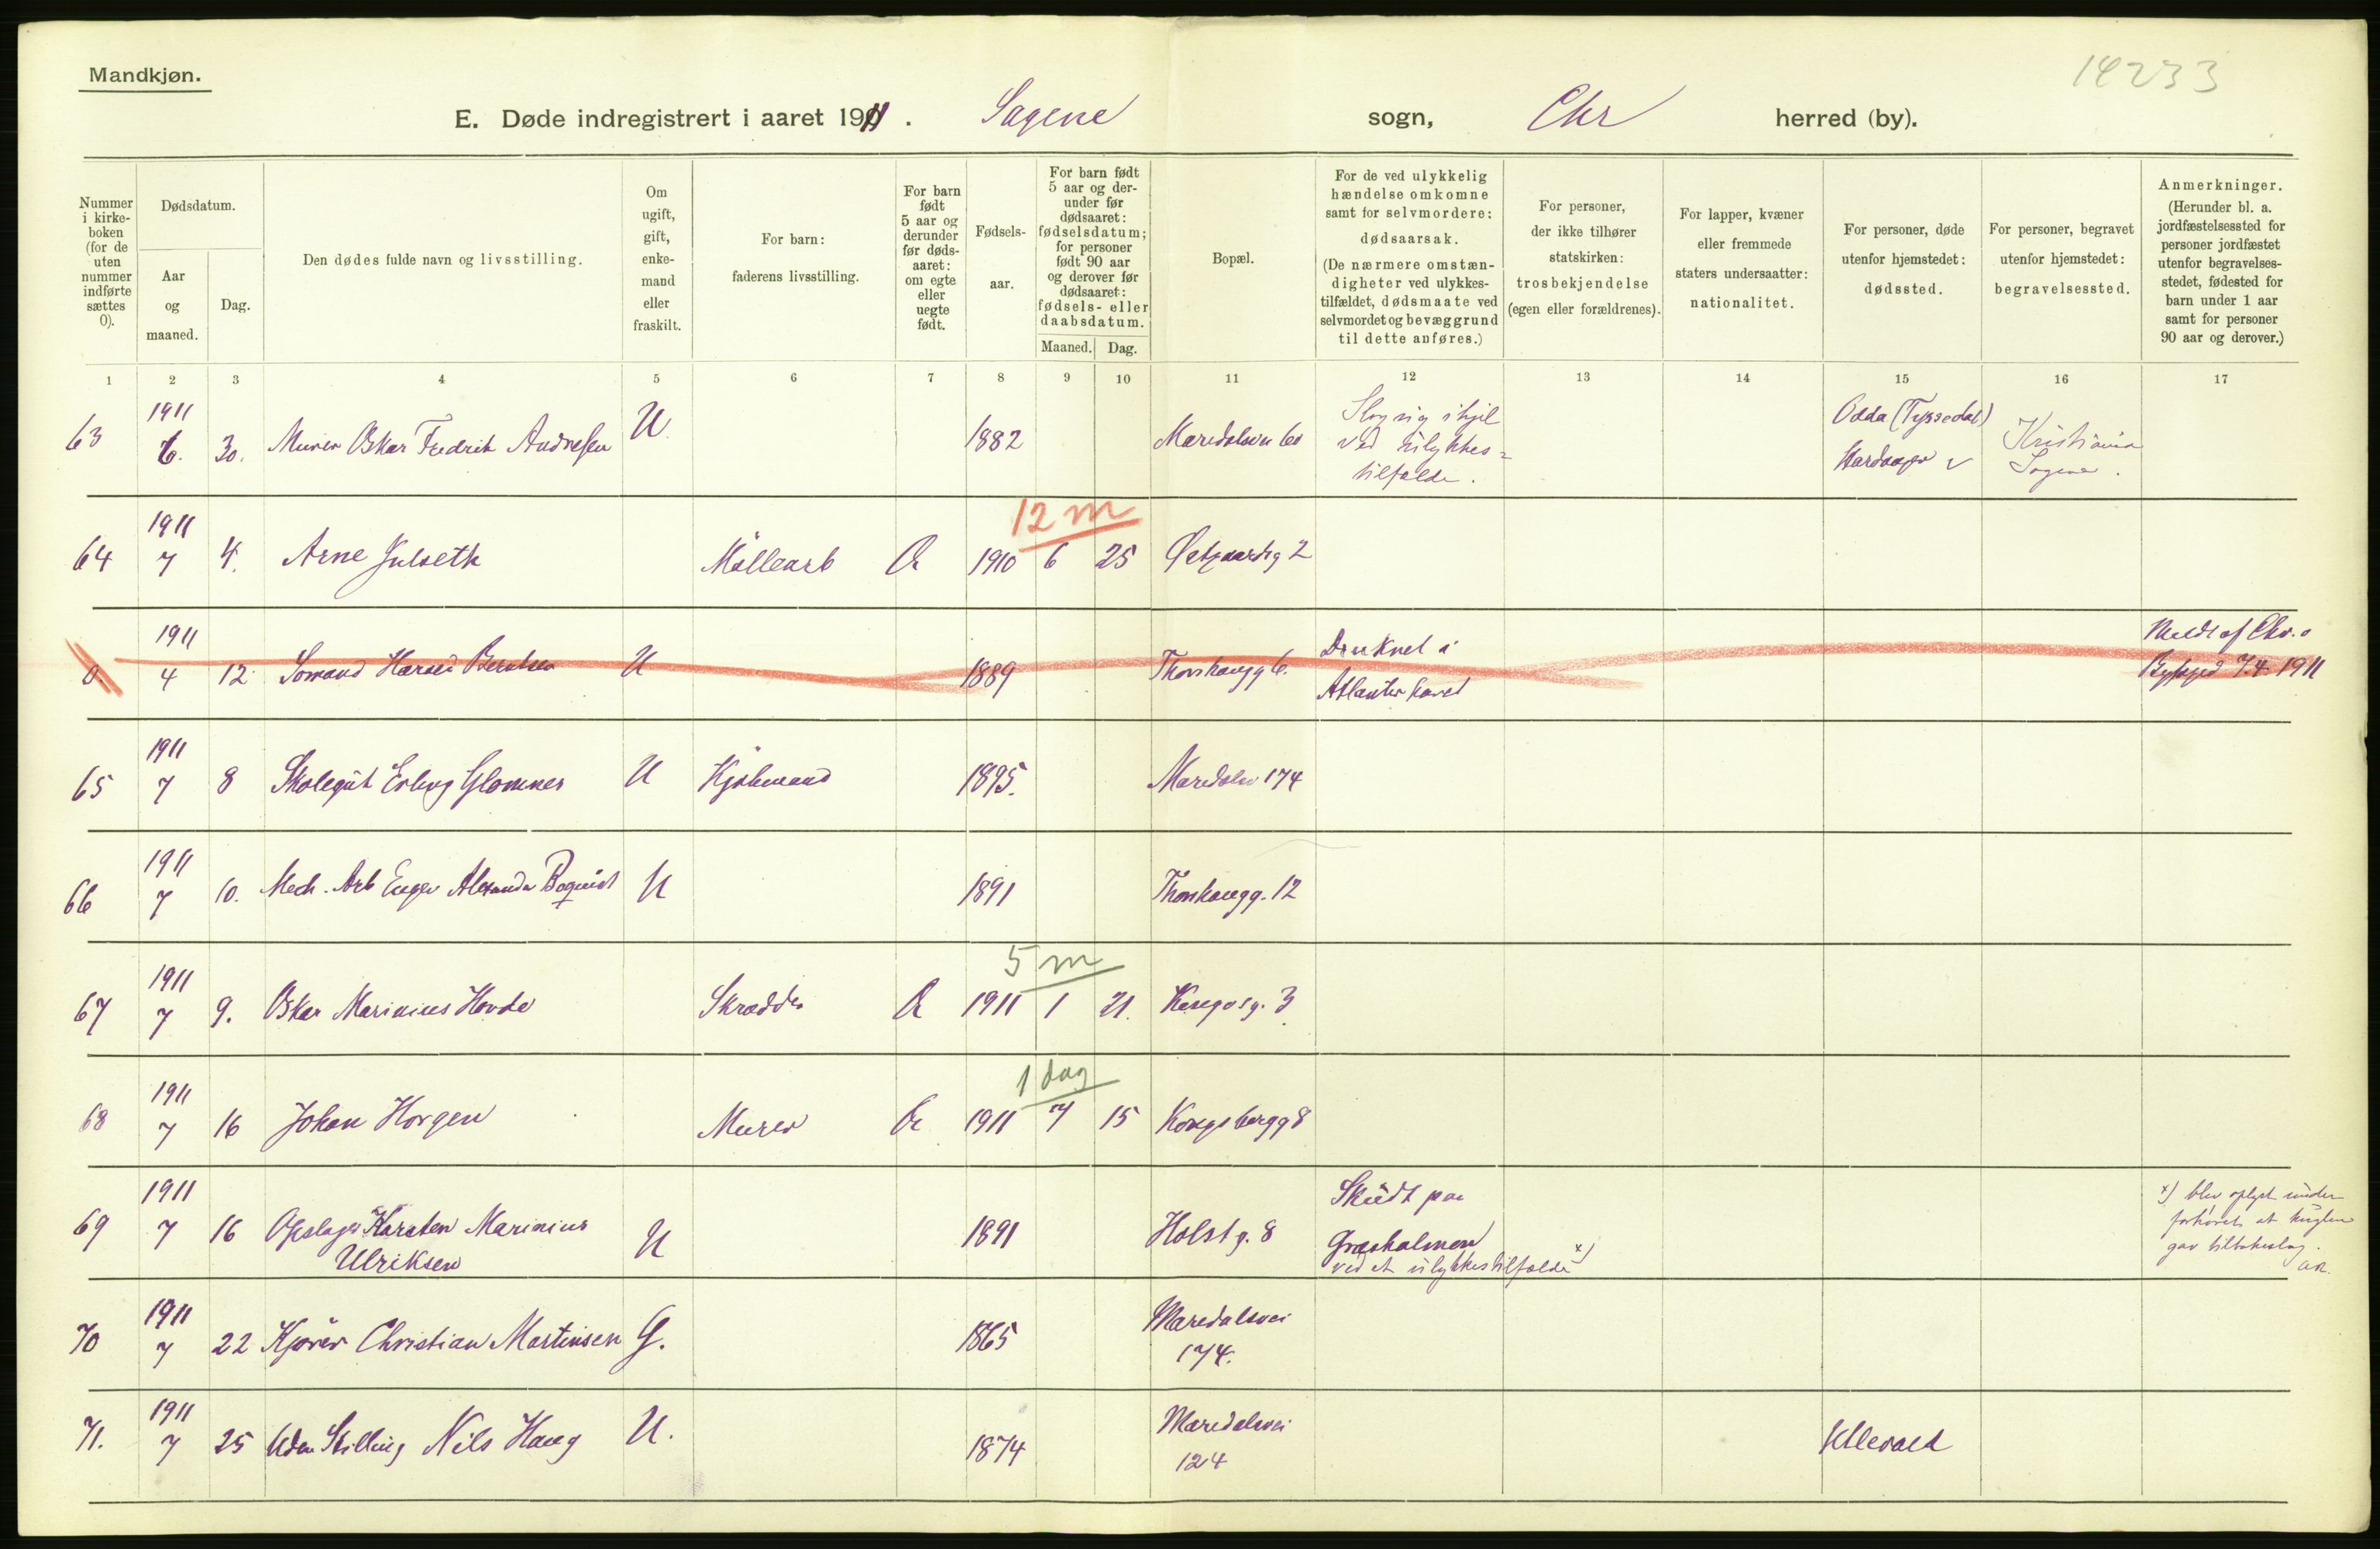 Mandkjøn.
14233
E. Døde indregistrert i aaret 1911. Sagene sogn, Chr herred (by).
Nummer i kirke- boken (for de uten nummer indførte sættes 0).
Dødsdatum.
Aar og maaned.
Dag.
Den dødes fulde navn og livsstilling.
Om ugift, gift, enke- mand eller fraskilt.
For barn: faderens livsstilling.
For barn født 5 aar og derunder før døds- aaret: om egte eller uegte født.
Fødsels- aar.
For barn født 5 aar og der- under før dødsaaret: fødselsdatum; for personer født 90 aar og derover før dødsaaret: fødsels- eller daabsdatum.
Maaned. Dag.
Bopæl.
For de ved ulykkelig hændelse omkomne samt for selvmordere: dødsaarsak. (De nærmere omstæn- digheter ved ulykkes- tilfældet, dødsmaate ved selvmordet og bevæggrund til dette anføres.)
For personer, der ikke tilhører statskirken: trosbekjendelse (egen eller forældrenes).
For lapper, kvæner eller fremmede staters undersaatter: nationalitet.
For personer, døde utenfor hjemstedet: dødssted.
For personer, begravet utenfor hjemstedet: begravelsessted.
Anmerkninger. (Herunder bl. a. jordfæstelsessted for personer jordfæstet utenfor begravelses- stedet, fødested for barn under 1 aar samt for personer 90 aar og derover.)
1 2 3 4 5 6 7 8 9 10 11 12 13 14 15 16 17
63 1911 6. 30. Murer Oskar Fredrik Andresen U 1882 Maridalsvn 60 Slog sig ihjel ved ulykkes= tilfælde. Odda (Tyssedal) Hardanger Kristiania Sagene.
12 m
64 1911 7 4. Arne Julseth Møllearb Æ 1910 6 25 Østgaardsg 2
0. 1911 4 12 Sømand Harald Berntsen U 1889 Thorshaugg 6. Druknet i Atlanterhavet Meldt af Chr.a Byfoged 7.4. 1911
65 1911 7 8 Skolegut Erling Glomnes U Kjøbmand 1895. Maridalsv 174
66 1911 7 10. Mech. Arb Eugen Alexander Boquist U 1891 Thorshaugg. 12
5 m
67 1911 7 9. Oskar Marinius Hovde Skrædder Æ 1911 1 21. 3
1 dag
68 1911 7 16 Johan Horgen Murer Æ 1911 7 15 Kongsbergg 8
69 1911 7 16 Opslager Karsten Marinius Ulriksen U 1891 Holstg. 8 Skudt paa Græsholmen ved et ulykkestilfælde x) x) blev oplyst under forhøret at kuglen gav tilbakeslag.
70 1911 7 22 Kjører Christian Martinsen G. 1865 Maridalsvei 174.
71. 1911 7 25 Uden Stilling Nils Haug U. 1874 Maridalsvei 124 Ullevaal